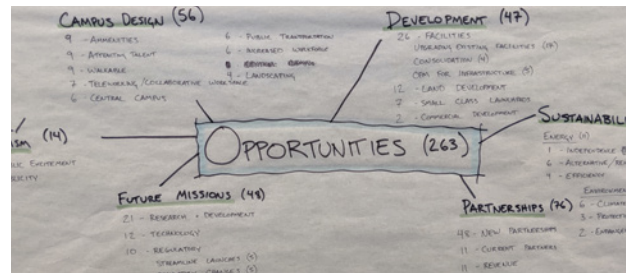 CAMPUS DESIGN (56)
9 - AMMENITIES
9 - ATTRACTING TALENT
9 - WALKABLE
7 - TELEWORKING/COLLABORATIVE WORKSPACE
6 - CENTRAL CAMPUS
6 - PUBLIC TRANSPORTATION
6 - INCREASED WORKFORCE
4 - LANDSCAPING
DEVELOPMENT (47)
26 - FACILITIES
UPGRADING EXISTING FACILITIES (17)
CONSOLIDATION (4)
FOR INFRASTRUCTURE (5)
12 - LAND DEVELOPMENT
7 - SMALL CLASS LAUNCHERS
2 - COMMERCIAL DEVELOPMENT
SUSTAINABILI
ENERGY
1 - INDEPENDENCE
6 - ALTERNATIVE/
4 - EFFICIENCY
6 - CLIMA
3 -
2 -
ISM (14)
LIC EXCITEMENT
LICITY
OPPORTUNITIES (263)
FUTURE MISSIONS (43)
21 - RESEARCH + DEVELOPMENT
12 - TECHNOLOGY
10 - REGULATORY
STREAMLINE LAUNCHES
CHANGES
PARTNERSHIPS (76)
48 - NEW PARTNERSHIPS
11 - CURRENT PARTNERS
11 - REVENUE